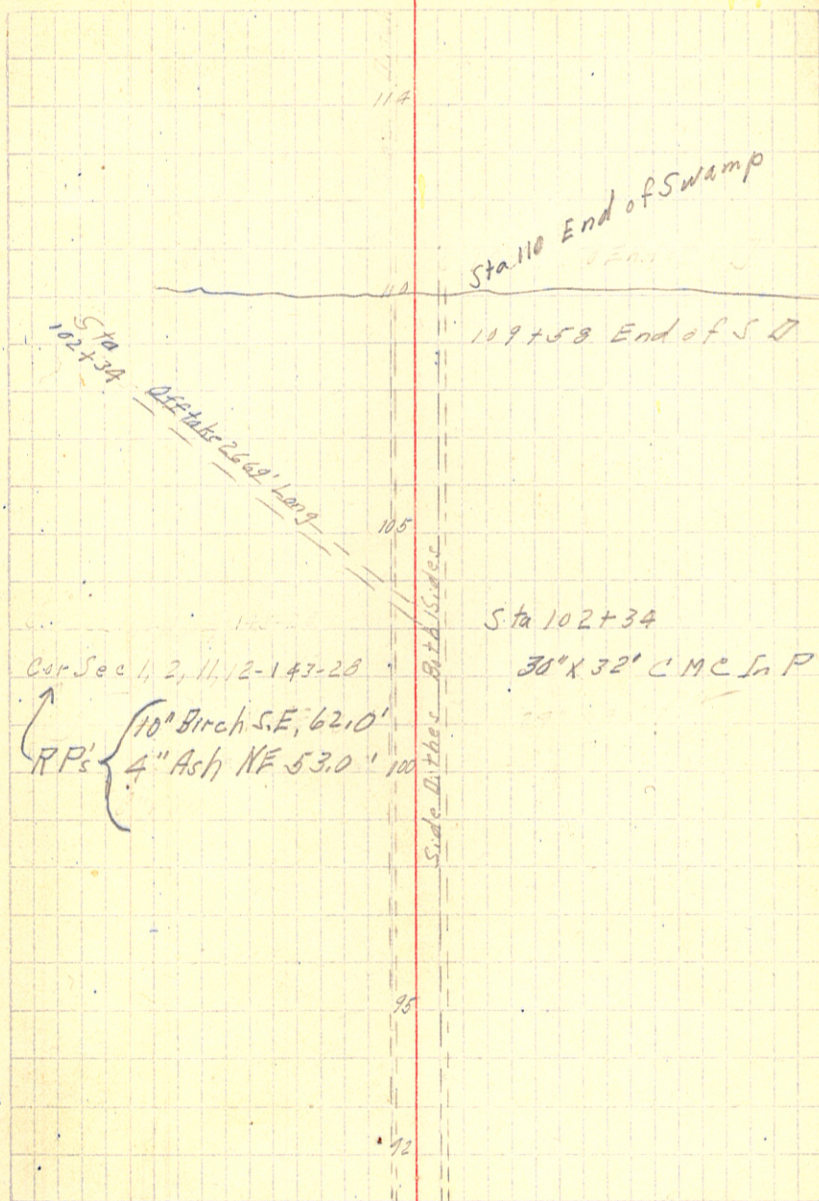 114
Sta 110 End of Swamp
110
109+58 End of S D
Sta
102+34
Offtake 2662' Long
105
Side Dithes Both Sides
Sta 102+34
30" X 32' C M C In P
Cor Sec 1, 2, 11, 12-143-28
RP's
10" Birch S.E, 62.0'
4" Ash NE 53.0'
100
95
92